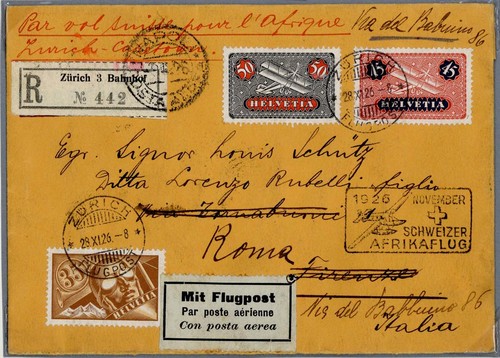 Par vol suisse pour l'Afrique
Zurich-Capetown
Via del Babuino
86
R
Zürich 3 Bahnhof
№ 442
50 50
HELVETIA
45 45
HELVETIA
ZÜRICH
28.XI.26.-8
FLUGPOST
Egr. Signor Louis Schütz
Ditta Lorenzo Rubelli & figlio
Roma
Firenze
Via del Babbuino 86
Italia
1926 NOVEMBER
SCHWEIZER
AFRIKAFLUG
ZÜRICH
28.XI.26.-8
FLUGPOST
35
HELVETIA
Mit Flugpost
Par poste aérienne
Con posta aerea